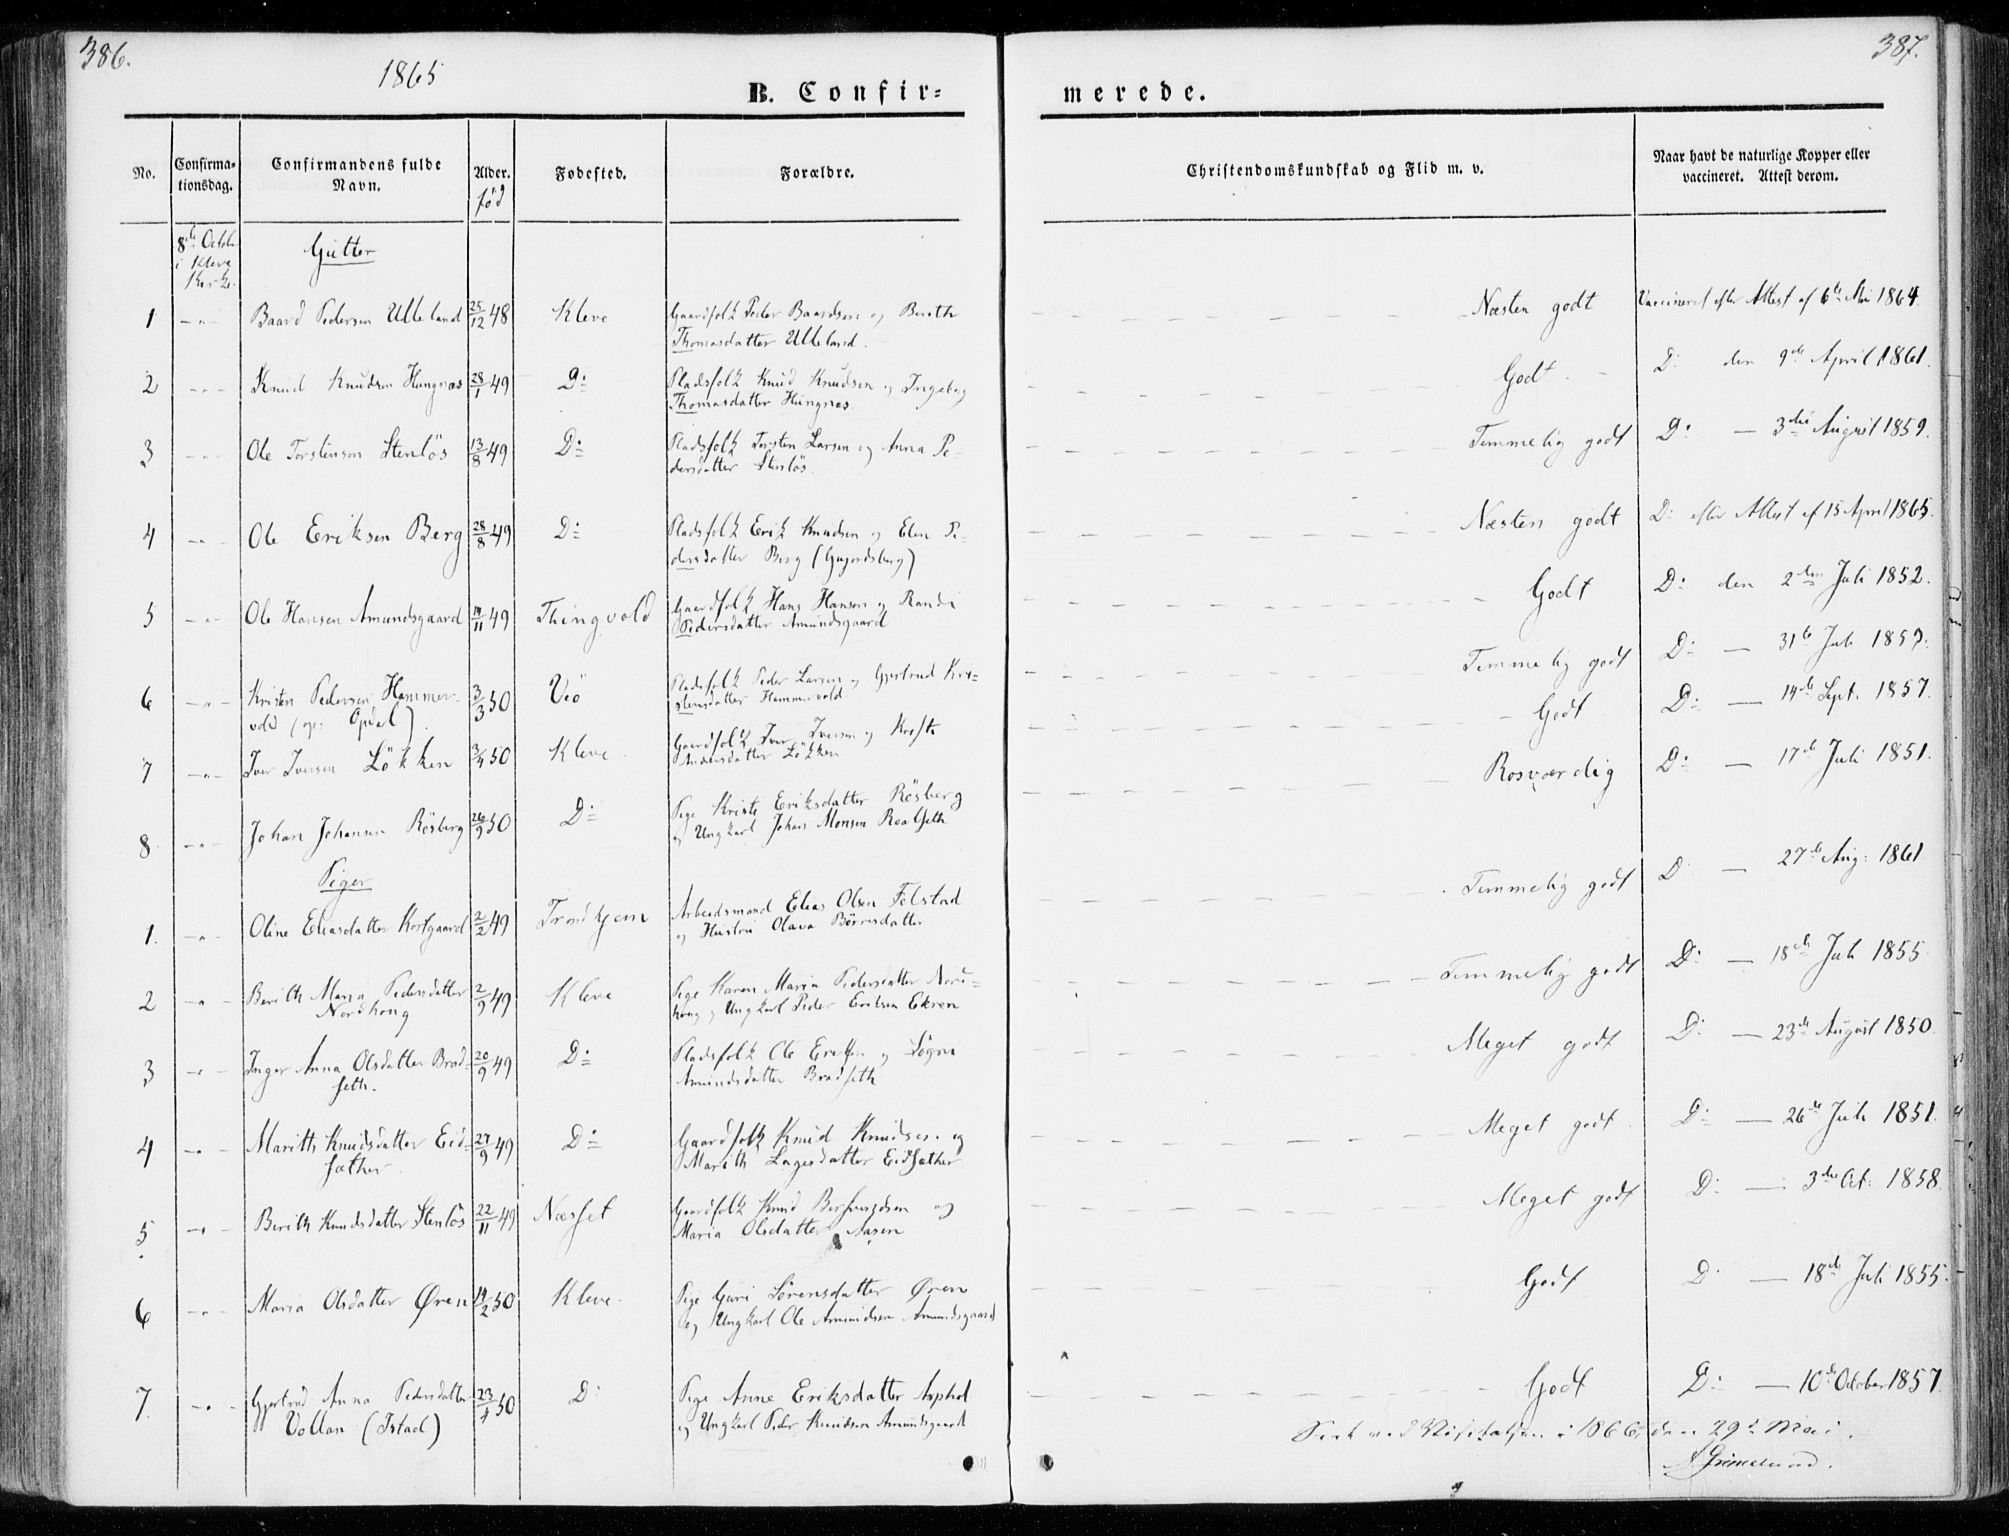 386.
387.
1865
B. Confir-
merede.
No.
Confirma-
tionsdag.
Confirmandens fulde
Navn.
Alder.
fød
Fødested.
Forældre.
Christendomskundskab og Flid m. v.
Naar havt de naturlige Kopper eller
vaccineret. Attest derom.
8de Octobr
i Kleve
Kirke
Gutter
1 -"- Baard Pedersen Ulleland 25/12 48 Kleve Gaardfolk Peder Baardsen og Berith
Thomasdatter Ulleland. Næsten godt Vaccineret efter Attest af 6te Mai 1864.
2 -"- Knud Knudsen Hungnes 28/1 49 D: Pladsfolk Knud Knudsen og Ingebog
Thomasdatter Hungnes. Godt D: den 9de April 1861.
3 -"- Ole Torstensen Stenlös 13/8 49 D: Pladsfolk Torsten Larsen og Anna Pe-
dersdatter Stenlös. Temmelig godt D: — 3die August 1859.
4 -"- Ole Eriksen Berg 28/8 49 D: Pladsfolk Erik Knudsen og Elen Pe-
dersdatter Berg (Gujordsberg) Næsten godt D: efter Attest af 15 April 1865.
5 -"- Ole Hansen Amundsgaard 19/11 49 Thingvold Gaardfolk Hans Hansen og Randi
Pedersdatter Amundsgaard Godt D: den 2den Juli 1852.
6 -"- Kristen Pedersen Hammer-
vold (op: Opdal) 3/3 50 Veö Pladsfolk Peder Larsen og Gjertrud Kri-
stensdatter Hammervold Temmelig godt D: — 31te Juli 1857.
7 -"- Iver Iversen Lökken 3/4 50 Kleve Gaardfolk Iver Iversen og Kristi
Andersdatter Lökken Godt D: — 14de Sept. 1857.
8 -"- Johan Johansen Rösberg 26/9 50 D: Pige Kristi Eriksdatter Rösberg
og Ungkarl Johan Monsen Roalseth Rosværdig D: — 17de Juli 1851.
Piger
1. -"- Oline Eliasdatter Kortgaard 2/2 49 Trondhjem Arbeidsmand Elias Olsen Folstad
og Hustru Olava Börresdatter Temmelig godt D: — 27de Aug: 1861
2 -"- Berith Maria Pedersdatter
Nordhong 2/9 49 Kleve Pige Karen Maria Pedersdatter Nord-
hong og Ungkarl Peder Eriksen Ekren Temmelig godt D: — 18de Juli 1855
3 -"- Inger Anna Olsdatter Brad-
seth. 20/9 49 D: Pladsfolk Ole Eriksen og Sögni
Amundsdatter Bradseth Meget godt D: — 23de August 1850.
4 -"- Marith Knudsdatter Eid-
sæther 27/9 49 D: Gaardfolk Knud Knudsen og
Marith Lagesdatter Eidsæther Meget godt D: — 26de Juli 1851.
5 -"- Berith Knudsdatter Stenlös 22/11 49 Næsset Gaardfolk Knud og
Maria Olsdatter Aasen Meget godt D: — 3die Oct: 1858.
6 -"- Maria Olsdatter Øren 14/2 50 Kleve. Pige Guri Sörensdatter Øren
og Ungkarl Ole Amundsen Amundsgaard Godt D: — 18de Juli 1855.
7. -"- Gjertrud Anna Pedersdatter
Vollan (Istad) 23/4 50 D: Pige Anne Eriksdatter Asphol
og Ungkarl Peder Knudsen Amundsgaard Godt D: — 10de October 1857.
Seet ved Visitatsen i 1866, den 29de Mai.
A Grimelund.